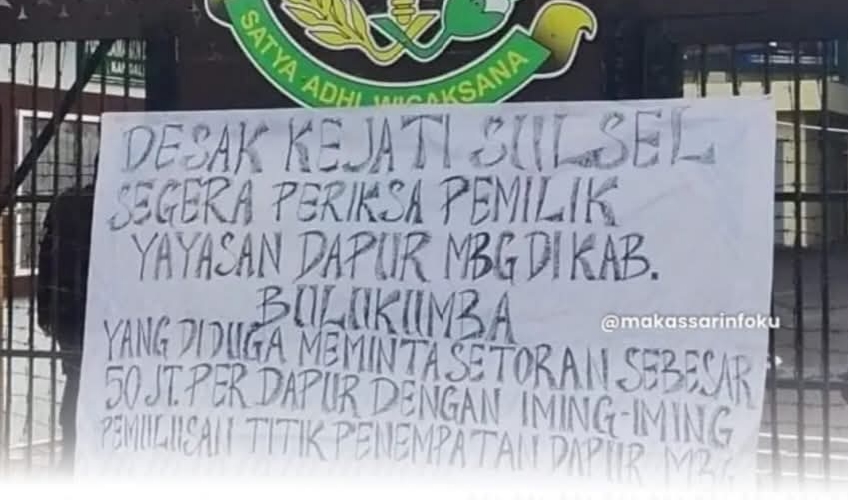 SATYA ADHI WICAKSANA
DESAK KEJATI SULSEL
SEGERA PERIKSA PEMILIK
YAYASAN DAPUR MBG DI KAB.
BULUKUMBA
@makassarinfoku
YANG DIDUGA MEMINTA SETORAN SEBESAR
50 JT. PER DAPUR DENGAN IMING-IMING
TITIK PENEMPATAN DAPUR MBG